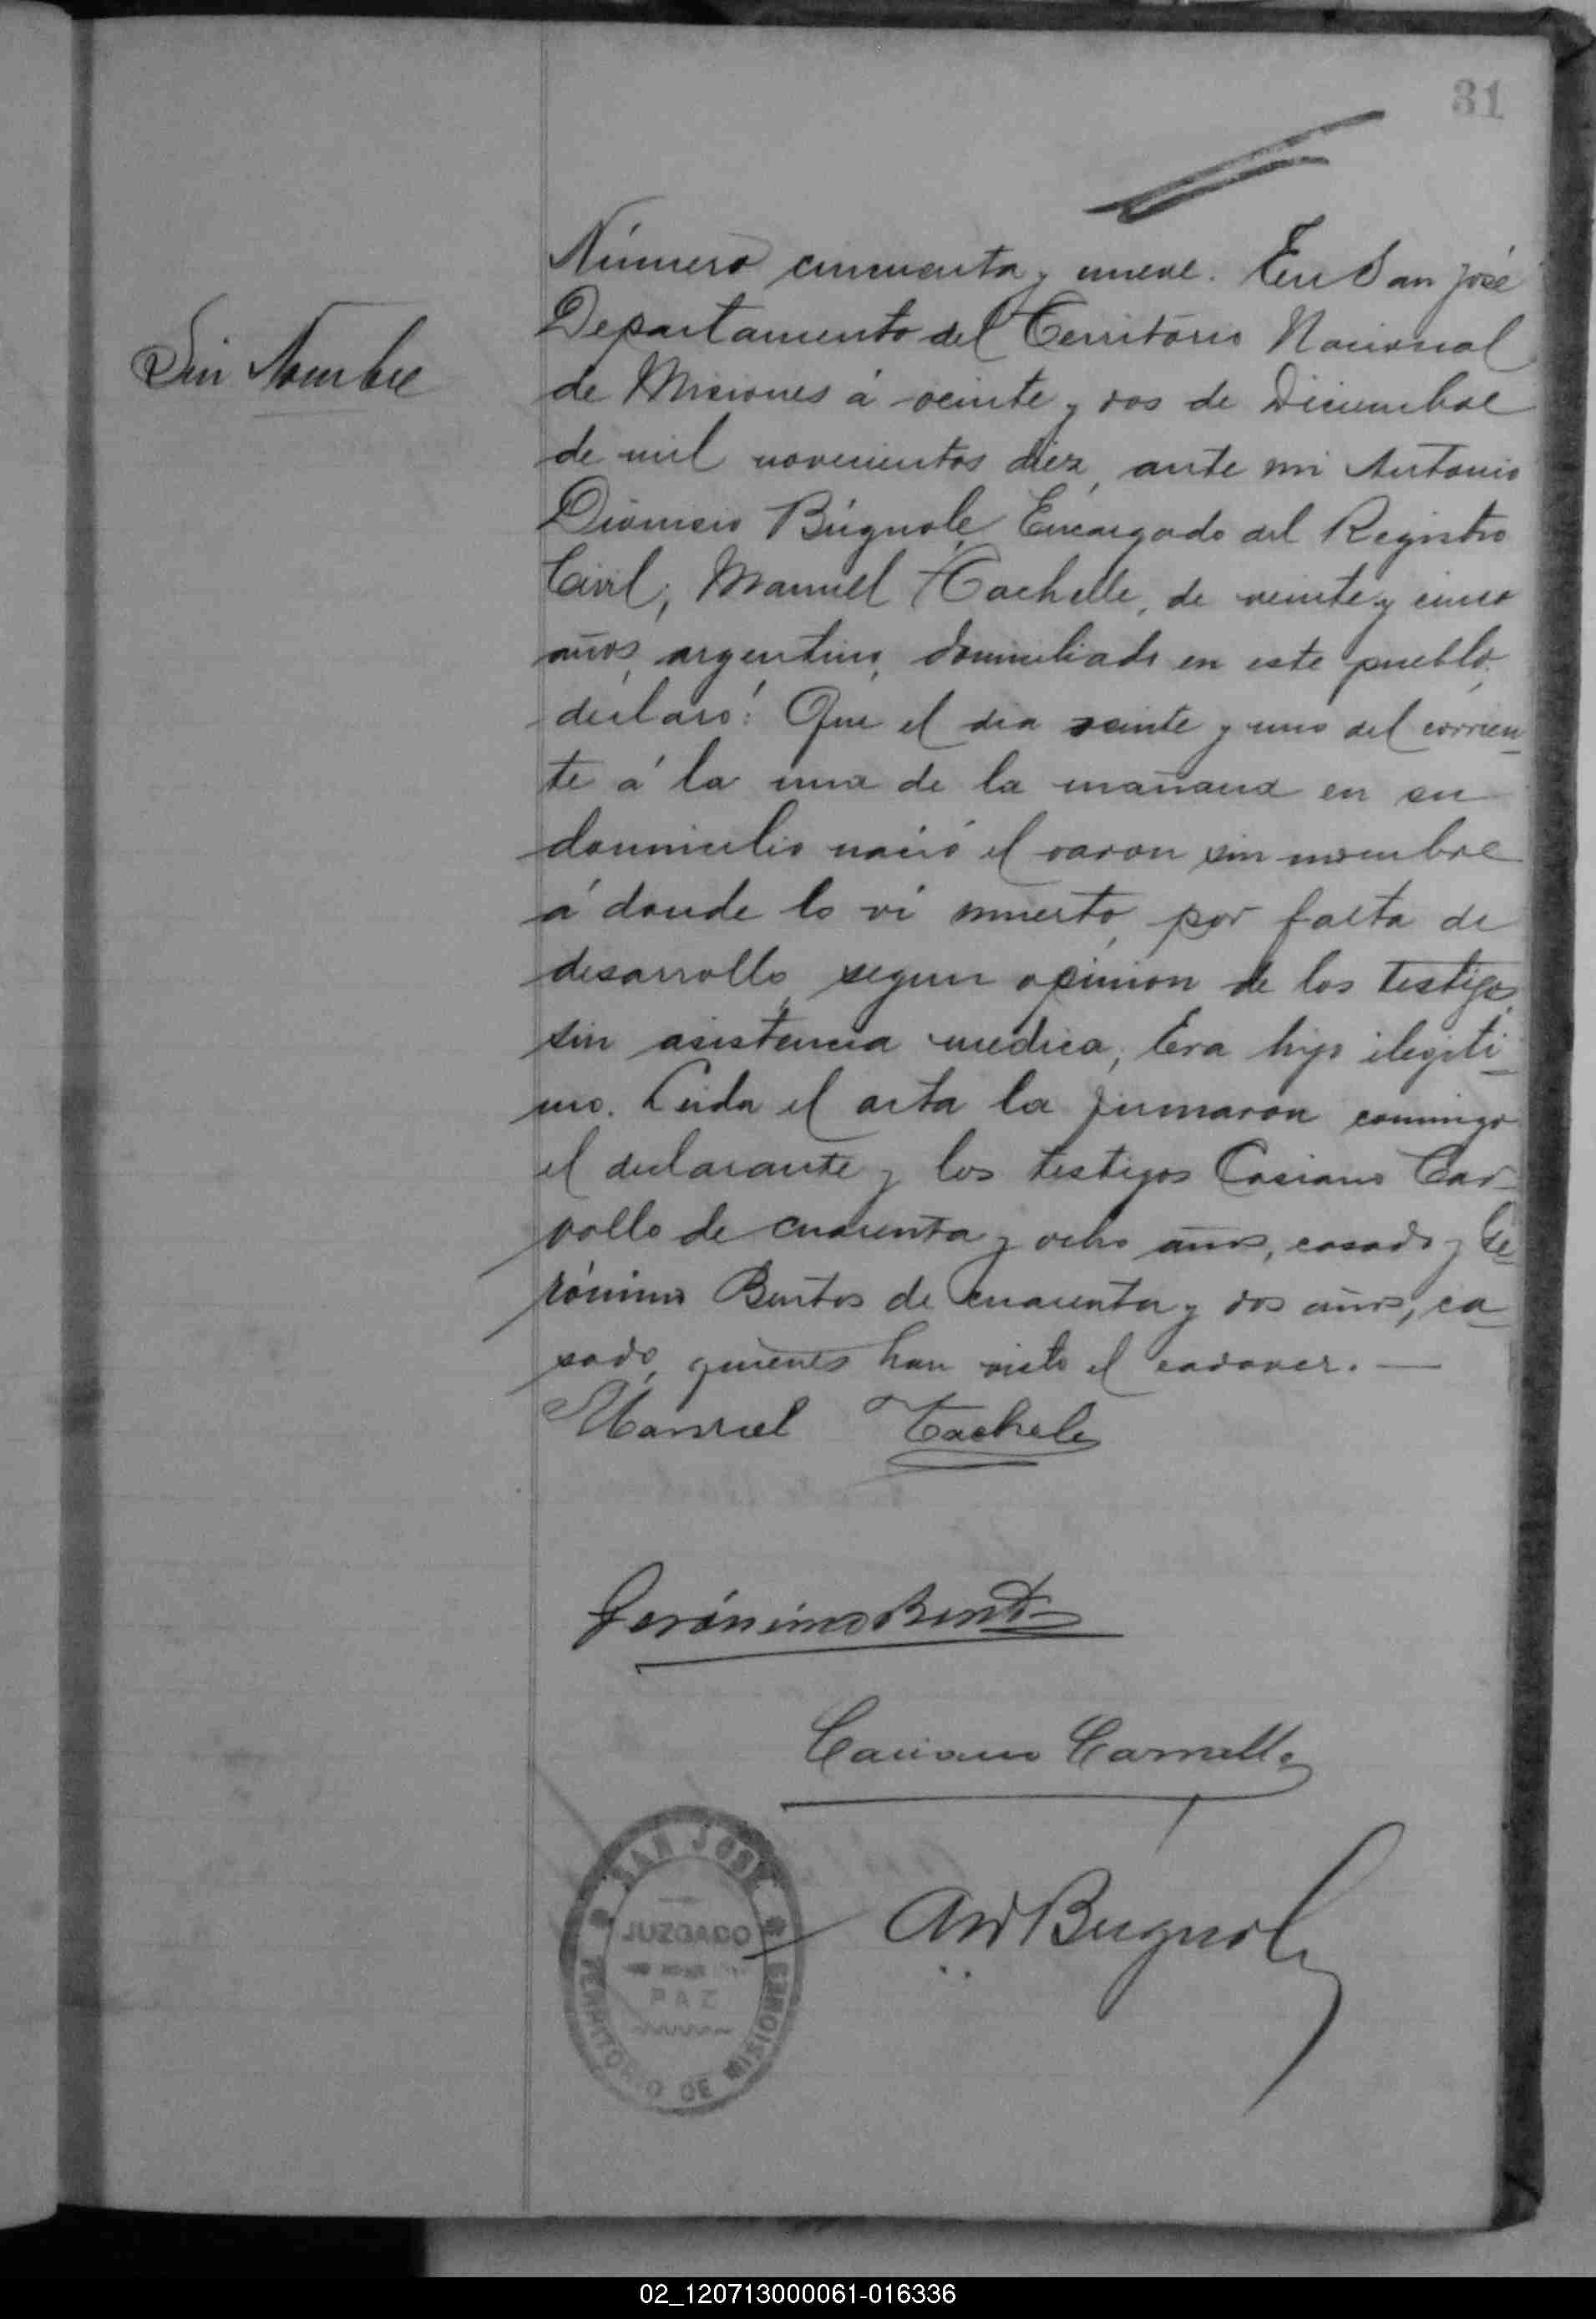 31
Número cincuenta y nueve. En San José
Departamento del Territorio Nacional
Sin Nombre
de Misiones á veinte y dos de Diciembre
de mil novecientos diez, ante mi Antonio
Dionicio Búgnole, Encargado del Registro
Civil, Manuel Tachelle, de veinte y cinco
años, argentino, domiciliado en este pueblo,
declaró: Que el dia veinte y uno del corrien-
te á la una de la mañana en su
domicilio nació el varon sin nombre
á donde lo ví muerto, por falta de
desarrollo, segun opinion de los testigos,
sin asistencia medica; Era hijo ilegiti-
mo. Leida el acta la firmaron conmigo
el declarante y los testigos Casiano Car-
vallo de cuarenta y ocho años, casado y Ge-
rónimo Bentos de cuarenta y dos años, ca-
sado, quienes han visto el cadaver. —
Manuel Tachele
Gerónimo Bentos
Casiano Carvallo
SAN JOSÉ
JUZGADO
PAZ
TERRITORIO DE MISIONES
AD Bugnole
02_120713000061-016336